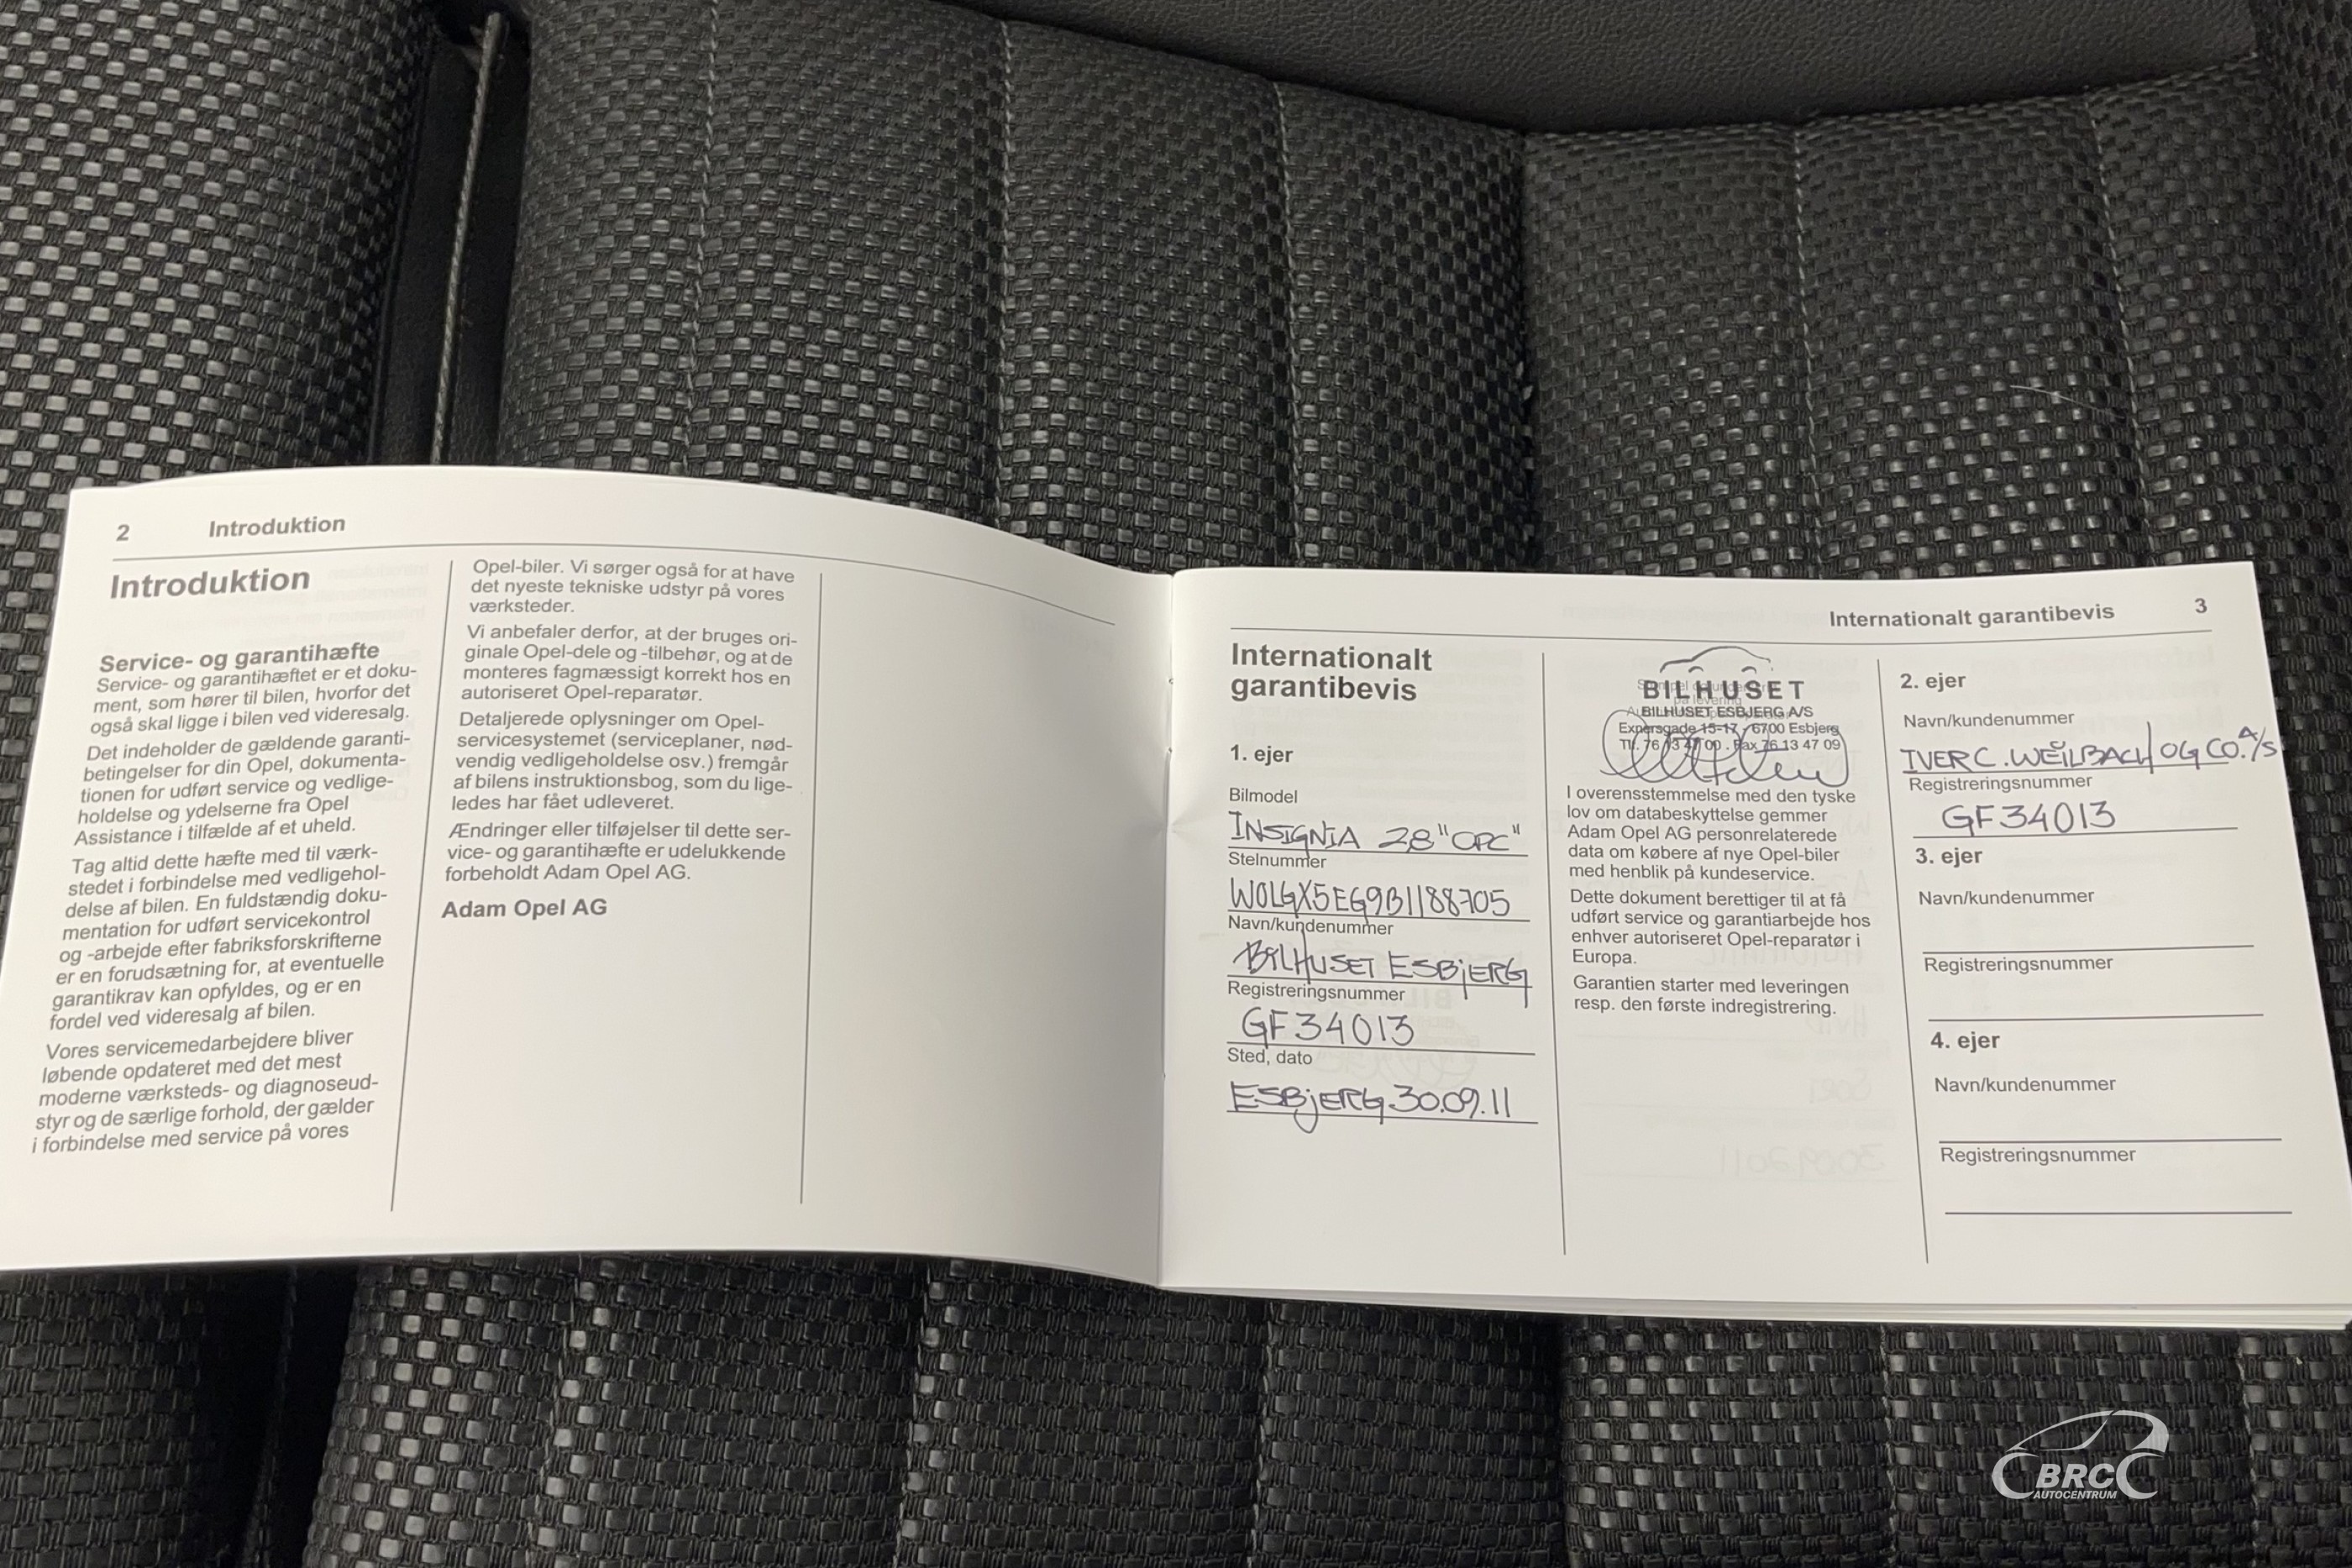 2 Introduktion
Introduktion
Service- og garantihæfte
Service- og garantihæftet er et doku-
ment, som hører til bilen, hvorfor det
også skal ligge i bilen ved videresalg.
Det indeholder de gældende garanti-
betingelser for din Opel, dokumenta-
tionen for udført service og vedlige-
holdelse og ydelserne fra Opel
Assistance i tilfælde af et uheld.
Tag altid dette hæfte med til værk-
stedet i forbindelse med vedligehol-
delse af bilen. En fuldstændig doku-
mentation for udført servicekontrol
og -arbejde efter fabriksforskrifterne
er en forudsætning for, at eventuelle
garantikrav kan opfyldes, og er en
fordel ved videresalg af bilen.
Vores servicemedarbejdere bliver
løbende opdateret med det mest
moderne værksteds- og diagnoseud-
styr og de særlige forhold, der gælder
i forbindelse med service på vores
Opel-biler. Vi sørger også for at have
det nyeste tekniske udstyr på vores
værksteder.
Vi anbefaler derfor, at der bruges ori-
ginale Opel-dele og -tilbehør, og at de
monteres fagmæssigt korrekt hos en
autoriseret Opel-reparatør.
Detaljerede oplysninger om Opel-
servicesystemet (serviceplaner, nød-
vendig vedligeholdelse osv.) fremgår
af bilens instruktionsbog, som du lige-
ledes har fået udleveret.
Ændringer eller tilføjelser til dette ser-
vice- og garantihæfte er udelukkende
forbeholdt Adam Opel AG.
Adam Opel AG
Internationalt garantibevis 3
Internationalt
garantibevis
1. ejer
Bilmodel
INSIGNIA 2,8 "OPC"
Stelnummer
W0LGX5EG9B1188705
Navn/kundenummer
BILHUSET ESBJERG
Registreringsnummer
GF34013
Sted, dato
ESBJERG 30.09.11
BILHUSET
BILHUSET ESBJERG A/S
Expersgade 15-17, 6700 Esbjerg
Tlf. 76 13 47 00 . Fax 76 13 47 09
I overensstemmelse med den tyske
lov om databeskyttelse gemmer
Adam Opel AG personrelaterede
data om købere af nye Opel-biler
med henblik på kundeservice.
Dette dokument berettiger til at få
udført service og garantiarbejde hos
enhver autoriseret Opel-reparatør i
Europa.
Garantien starter med leveringen
resp. den første indregistrering.
2. ejer
Navn/kundenummer
IVER C. WEILBACH OG CO. A/S
Registreringsnummer
GF34013
3. ejer
Navn/kundenummer
Registreringsnummer
4. ejer
Navn/kundenummer
Registreringsnummer
BRC
AUTOCENTRUM